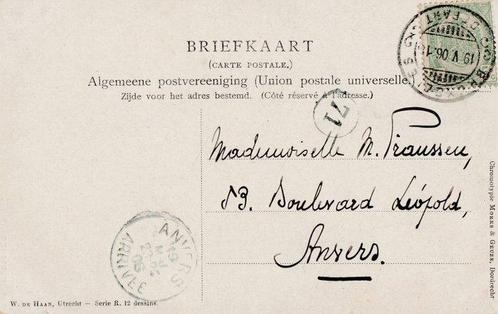 BRIEFKAART
(CARTE POSTALE,)
Algemeene postvereeniging (Union postale universelle)
Zijde voor het adres bestemd. (Côté réservé à l'adresse.)
19 V 06
71
Mademoiselle M. Praussen,
53. Boulevard Léopold,
Anvers.
ANVERS
19
06
ARRIVÉE
W. DE HAAN, Utrecht – Serie R. 12 dessins.
Chromotypie MORKS & GEUZE, Dordrecht